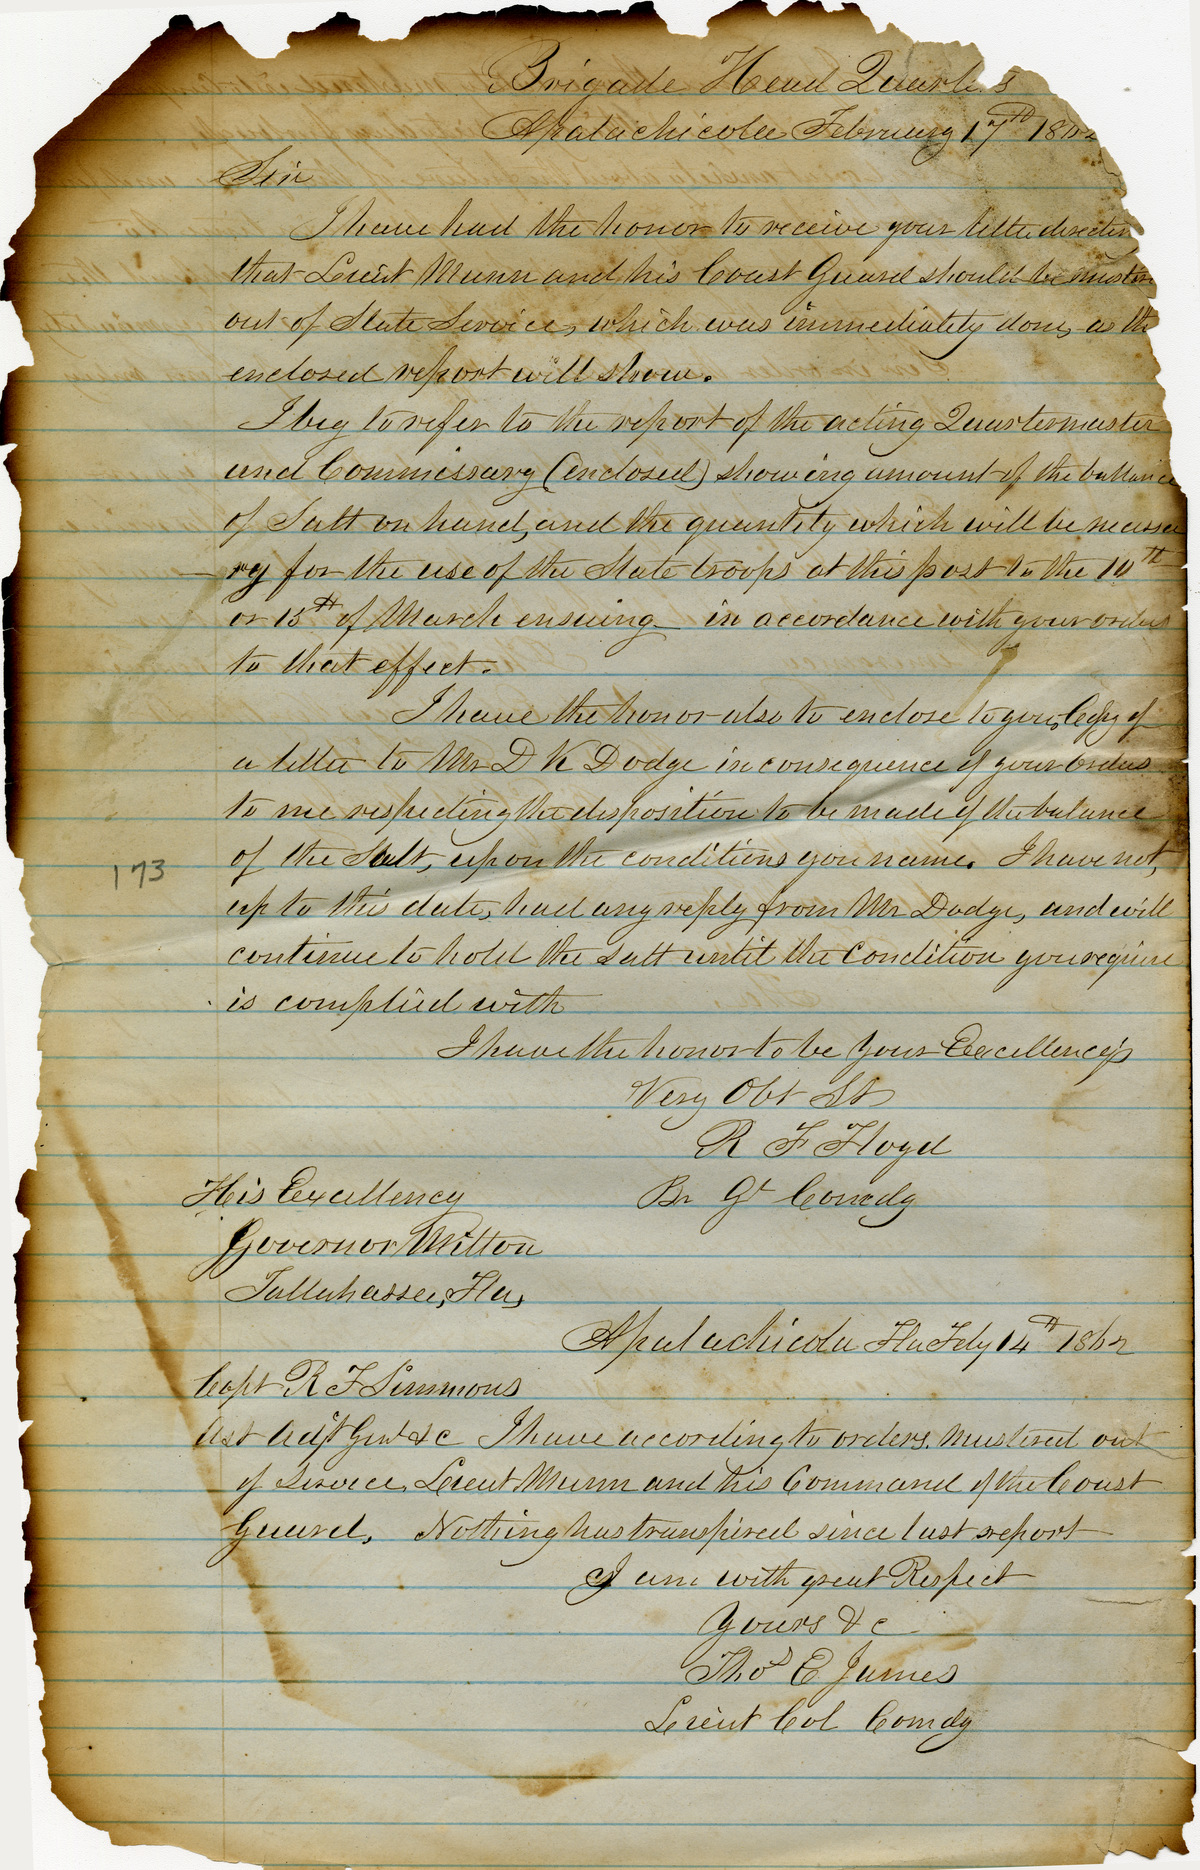 Brigade Head Quarters
Apalachicola February 17th 1862
Sir
I have had the honor to receive your letter directin
that Lieut Munn and his Coast Guard should be muster
out of State Service, which was immediately done, as the
enclosed report will show.
I beg to refer to the report of the acting Quartermaster
and Commissary (enclosed) showing amount of the ballance
of Salt on hand, and the quantity which will be necessa
ry for the use of the State troops at this post to the 10th
or 15th of March ensuing in accordance with your orders
to that effect.
I have the honor also to enclose to you, Copy of
a letter to Mr D K Dodge in consequence of your Orders
to me respecting the disposition to be made of the balance
of the Salt, upon the conditions you name. I have not,
up to this date, had any reply from Mr Dodge, and will
continue to hold the salt until the Condition you require
is complied with
I have the honor to be Your Excellency's
Very Obt St
R F Floyd
Br Gl Comdg
His Excellency
Governor Milton
Tallahassee, Fla,
173
Apalachicola Fla Feby 14th 1862
Capt R F Simmons
Ast Adjt Genl &c I have according to orders, Mustered out
of service, Lieut Munn and his Command of the Coast
Guard, Nothing has transpired since last report
I am with great Respect
Yours &c
Thos E James
Lieut Col Comdg